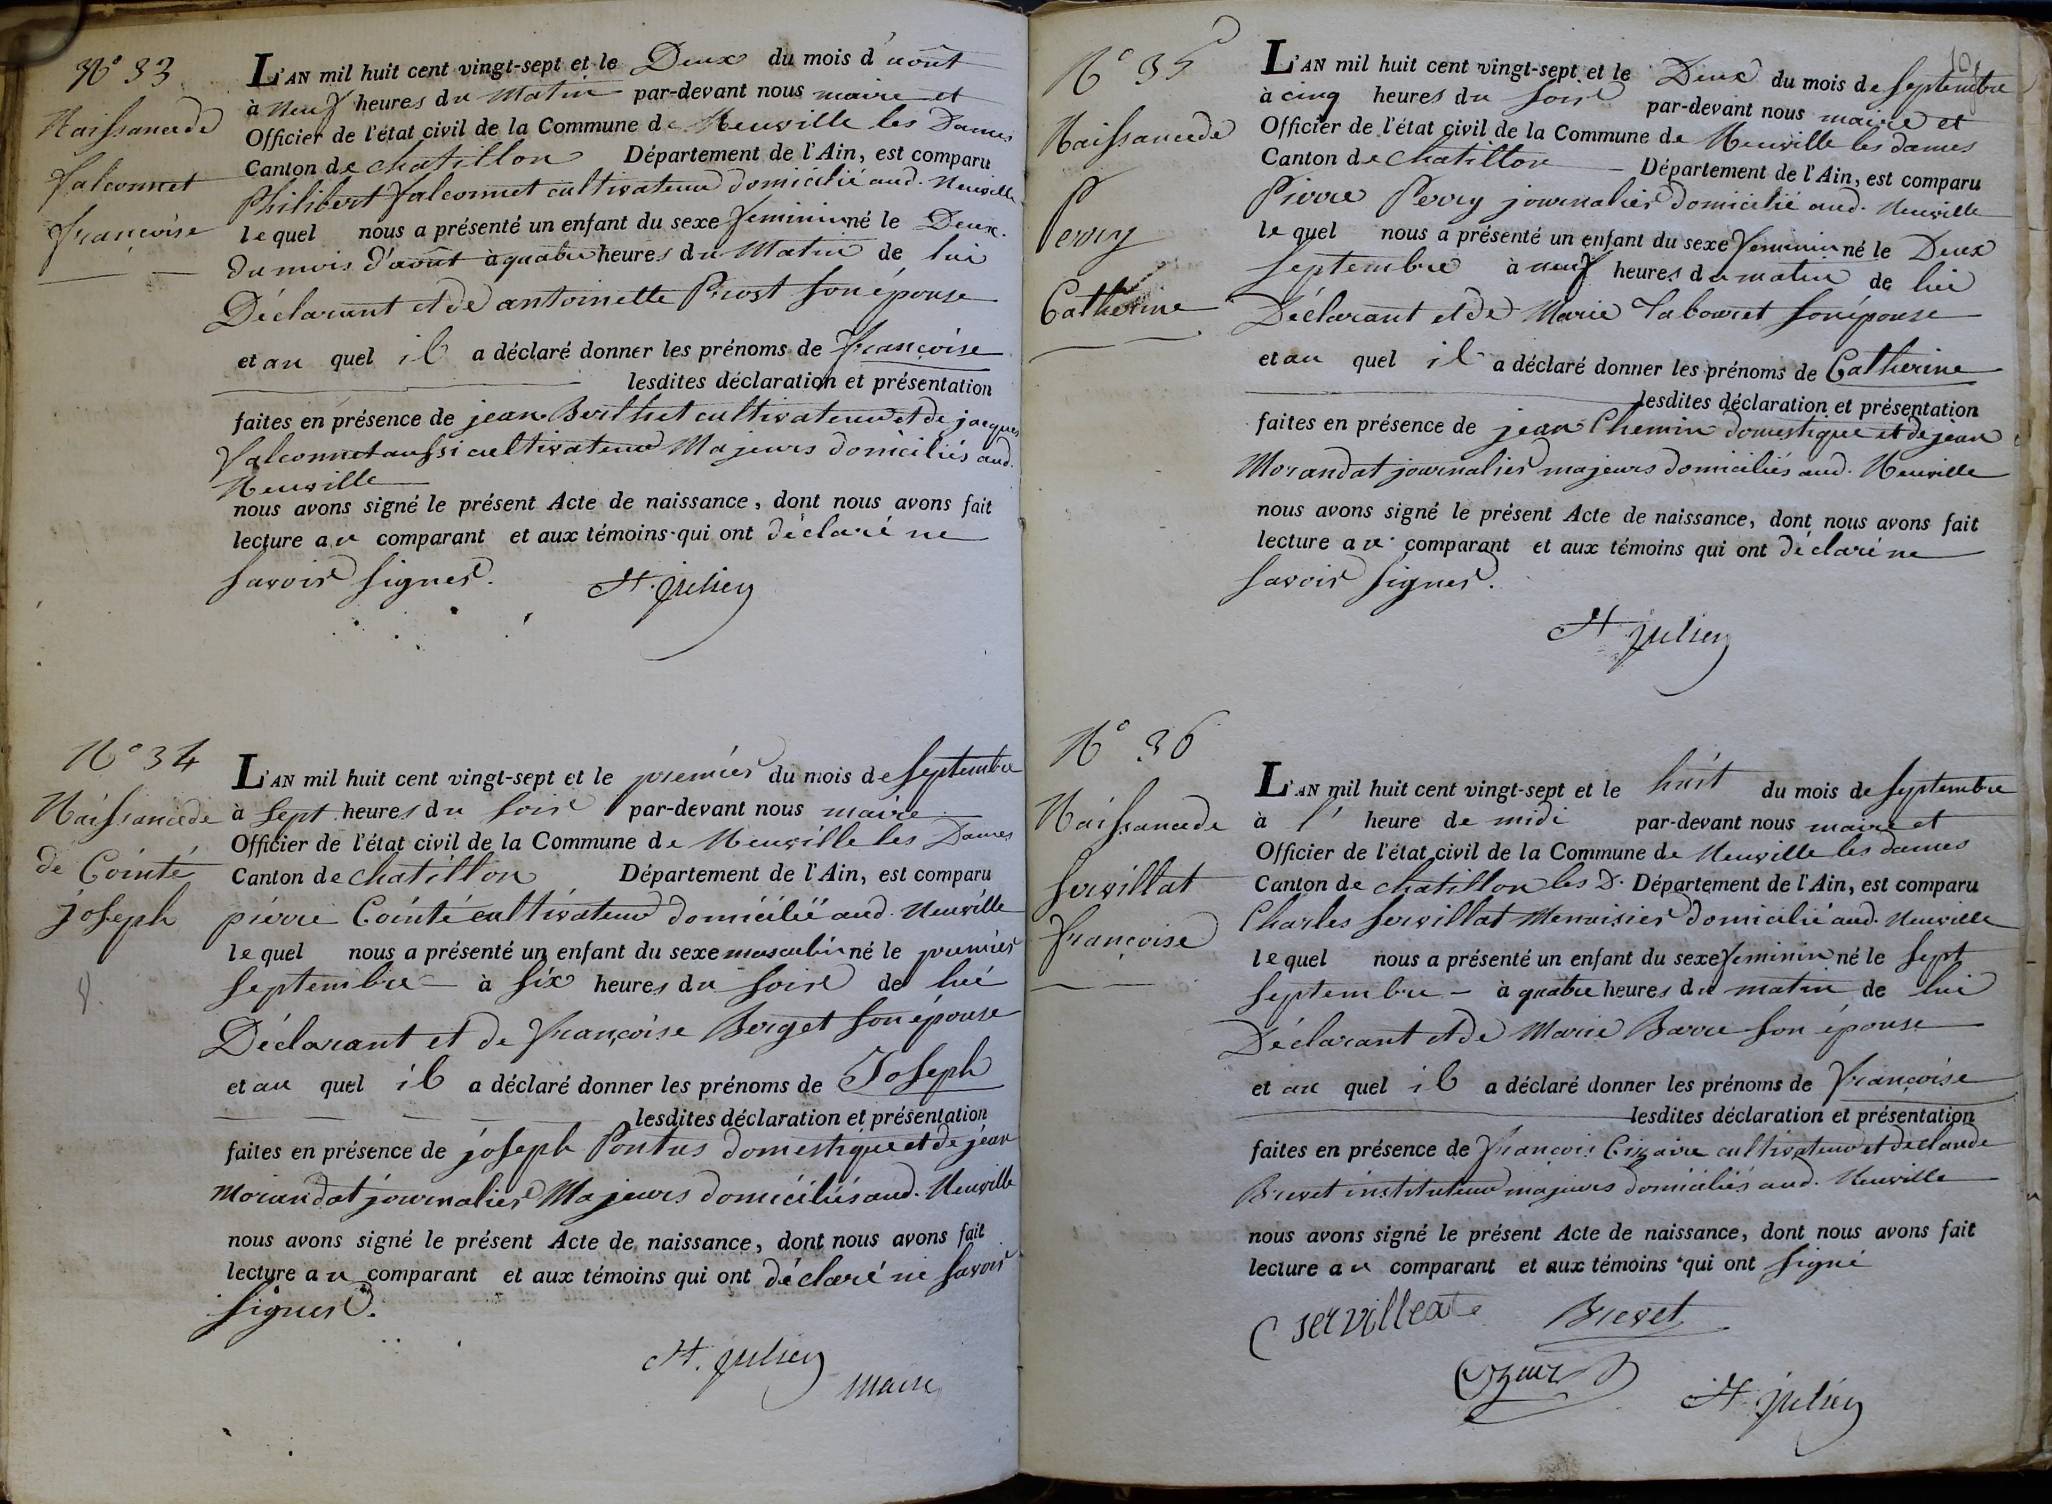 N° 33
Naissance de
falconnet
françoise
L'AN mil huit cent vingt-sept et le Deux du mois d'août
à neuf heures du Matin par-devant nous maire et
Officier de l'état civil de la Commune de Neuville les Dames
Canton de chatillon Département de l'Ain, est comparu
Philibert falconnet cultivateur domicilié aud. Neuville
lequel nous a présenté un enfant du sexe feminin né le Deux
du mois d'août à quatre heures du Matin de lui
Déclarant et de antoinette Prost son épouse
et au quel il a déclaré donner les prénoms de françoise
lesdites déclaration et présentation
faites en présence de jean Berthet cultivateur et de jacques
falconnet aussi cultivateur Majeurs domiciliés aud.
Neuville
nous avons signé le présent Acte de naissance, dont nous avons fait
lecture au comparant et aux témoins qui ont déclaré ne
savoir signer.
H. julien
N° 34
Naissance de
de Cointé
joseph
L'AN mil huit cent vingt-sept et le premier du mois de septembre
à sept heures du soir par-devant nous maire
Officier de l'état civil de la Commune de Neuville les Dames
Canton de chatillon Département de l'Ain, est comparu
pierre Cointé cultivateur domicilié aud. Neuville
lequel nous a présenté un enfant du sexe masculin né le premier
septembre à six heures du soir de lui
Déclarant et de françoise Berget son épouse
et au quel il a déclaré donner les prénoms de Joseph
lesdites déclaration et présentation
faites en présence de joseph Pontus domestique et de jean
Morandat journalier Majeurs domiciliés aud. Neuville
nous avons signé le présent Acte de naissance, dont nous avons fait
lecture au comparant et aux témoins qui ont déclaré ne savoir
signer.
H. julien
maire
10
N° 35
Naissance de
Perry
Catherine
L'AN mil huit cent vingt-sept et le Deux du mois de septembre
à cinq heures du soir par-devant nous maire et
Officier de l'état civil de la Commune de Neuville les dames
Canton de chatillon Département de l'Ain, est comparu
Pierre Perry journalier domicilié aud. Neuville
lequel nous a présenté un enfant du sexe feminin né le Deux
septembre à neuf heures du matin de lui
Déclarant et de Marie Tabouret son épouse
et au quel il a déclaré donner les prénoms de Catherine
lesdites déclaration et présentation
faites en présence de jean Chemin domestique et de jean
Morandat journalier majeurs domiciliés aud. Neuville
nous avons signé le présent Acte de naissance, dont nous avons fait
lecture au comparant et aux témoins qui ont déclaré ne
savoir signer.
H julien
N° 36
Naissance de
servillat
françoise
L'AN mil huit cent vingt-sept et le huit du mois de septembre
à l' heure de midi par-devant nous maire et
Officier de l'état civil de la Commune de Neuville les dames
Canton de chatillon les D. Département de l'Ain, est comparu
Charles servillat Menuisier domicilié aud. Neuville
lequel nous a présenté un enfant du sexe feminin né le sept
septembre à quatre heures du matin de lui
Déclarant et de Marie Barre son épouse
et au quel il a déclaré donner les prénoms de françoise
lesdites déclaration et présentation
faites en présence de françois Cizaire cultivateur et de claude
Brevet instituteur majeurs domiciliés aud. Neuville
nous avons signé le présent Acte de naissance, dont nous avons fait
lecture au comparant et aux témoins qui ont signé
C servilleat Brevet
H. julien